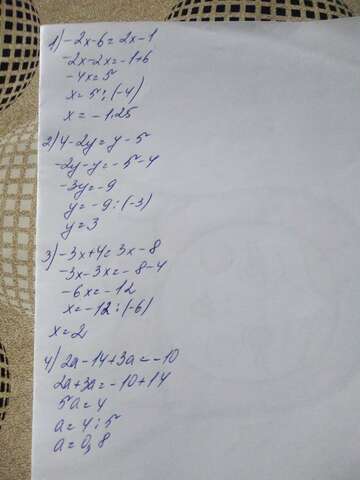 1) -2x-6=2x-1
-2x-2x=-1+6
-4x=5
x=5:(-4)
x=-1,25
2) 4-2y=y-5
-2y-y=-5-4
-3y=-9
y=-9:(-3)
y=3
3) -3x+4=3x-8
-3x-3x=-8-4
-6x=-12
x=-12:(-6)
x=2
4) 2a-14+3a=-10
2a+3a=-10+14
5a=4
a=4:5
a=0,8